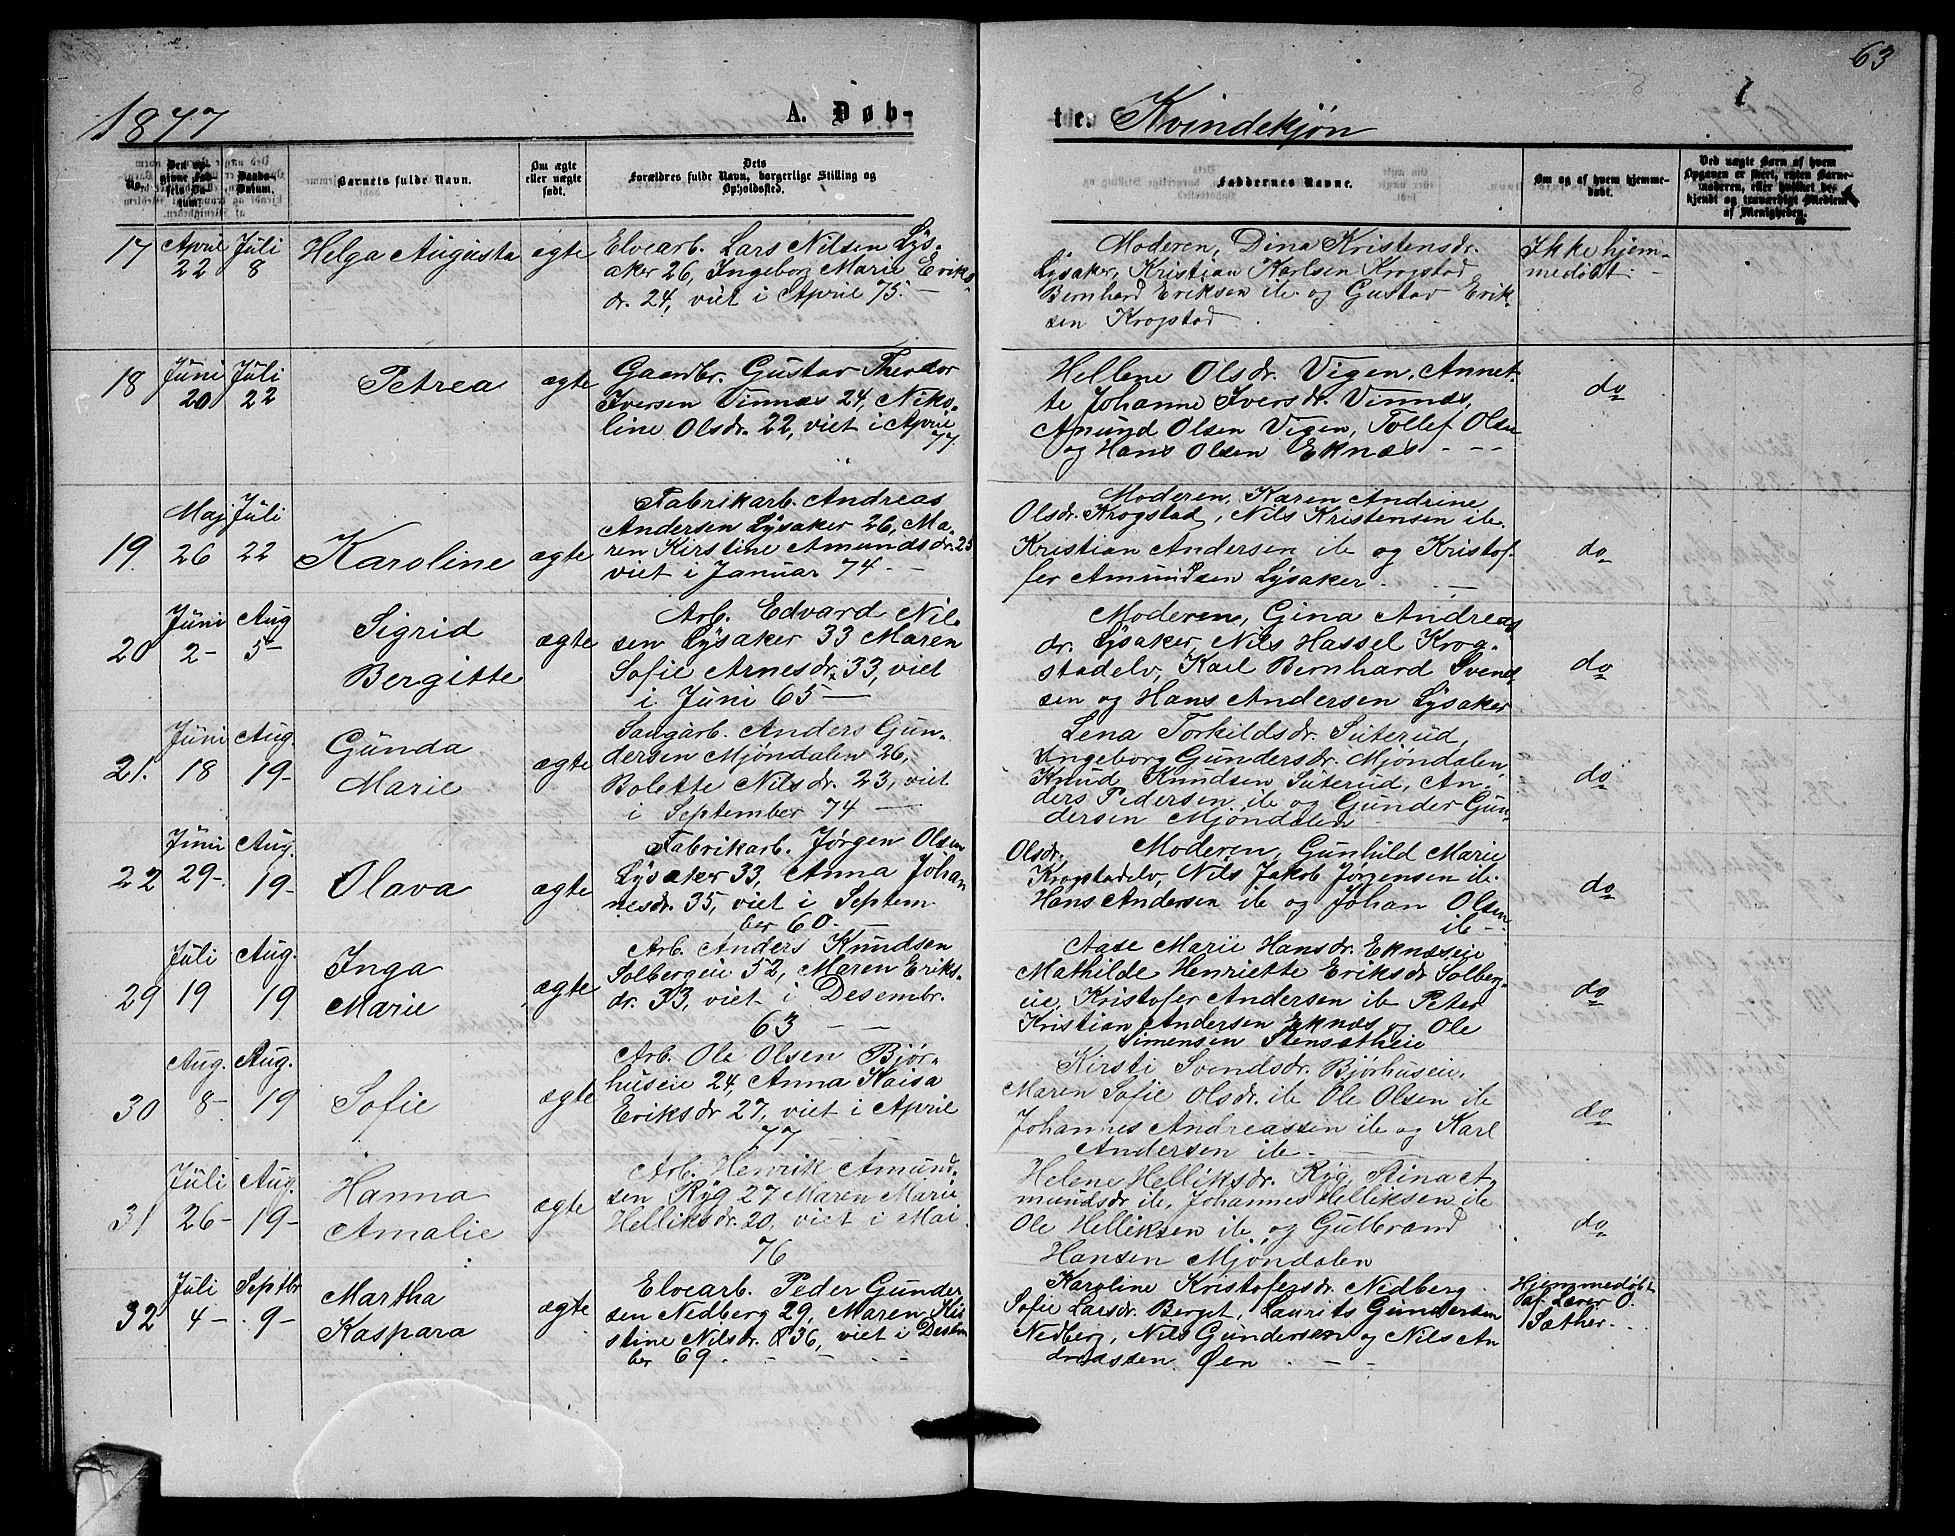 63
1877
A. Døb-
te. Kvindekjøn
No.
Den op-
givne Fød-
sels Da-
tum.
Daabs-
Datum.
Barnets fulde Navn.
Om ægte
eller uægte
født.
Dets
Forældres fulde Navn, borgerlige Stilling og
Opholdssted.
Faddernes Navne.
Om og af hvem hjemme-
døbt.
Ved uægte Børn af hvem
Opgaven er skeet, enten Barne-
moderen, eller hvilket be-
kjendt og troværdigt Medlem
af Menigheden.
17
April
22
Juli
8
Helga Augusta
egte
Elvearb. Lars Nilsen Lÿs-
aker 26, Ingeborg Marie Eriks-
dr. 24, viet i April 75. —
Moderen, Dina Kristensdr.
Lÿsaker, Kristian Karlsen Krogstad
Bernhard Eriksen ib. og Gustav Erik-
sen Krogstad
Ikke hjem-
medøbt. —
18
Juni
20
Juli
22
Petrea
ægte
Gaardbr. Gustav Theodor
Iversen Vinnæs 24, Niko-
line Olsdr. 22, viet i April
77.
Hellene Olsdr. Vigen, Annet-
te Johanne Iversdr. Vinnæs,
Amund Olsen Vigen, Tollef Olsen
og Hans Olsen Eknæs - - -
do
19.
Maj
26
Juli
22
Karoline
ægte
Fabrikarb. Andreas
Andersen Lÿsaker 26, Ma-
ren Kirstine Amundsdr. 25
viet i Januar 74 - -
Moderen, Karen Andrine
Olsdr. Krogstad, Nils Kristensen ib.
Kristian Andersen ib og Kristof-
fer Amundsen Lÿsaker. —
do
20
Juni
2-
Aug
5-
Sigrid
Bergitte
ægte
Arb. Edvard Nil-
sen Lÿsaker 33 Maren
Sofie Arnesdr. 33, viet
i Juni 65 —
Moderen, Gina Andreas
dr. Lÿsaker, Nils Hassel Krog-
stadelv, Karl Bernhard Svend-
sen og Hans Andersen Lÿsaker
do
21.
Juni
18
Aug.
19-
Gunda
Marie
ægte
Saugarb. Anders Gun-
dersen Mjøndalen 26,
Bolette Nilsdr. 23, viet
i September 74 —
Lena Torkildsdr. Suterud,
Ingeborg Gundersdr. Mjøndalen,
Knud Knudsen Suterud, An-
ders Pedersen ib og Gunder Gun-
dersen Mjøndalen
do
22
Juni
29-.
Aug.
19-
Olava
ægte
Fabrikarb. Jørgen Olsen
Lÿsaker 33, Anna Johan
nesdr. 35, viet i Septem
ber 60. —
Moderen, Gunhild Marie
Olsdr,
Krogstadelv, Nils Jakob Jørgensen ib.
Hans Andersen ib og Johan Olsen
ib -
do
29
Juli
19
Aug.
19
Inga
Marie
ægte
Arb. Anders Knudsen
Solbergeie 52, Maren Eriks-
dr. 33, viet i Desembr.
63 — —
Aase Marie Hansdr. Eknæseie
Mathilde Henriette Eriksdr Solberg-
eie, Kristofer Andersen ib Peter
Kristian Andersen Eknæs og Ole
Simensen Stensætheie
do
30
Aug.
8-
Aug.
19
Sofie
ægte
Arb. Ole Olsen Bjør-
huseie 24, Anna Kaisa
Eriksdr 27, viet i April
77 - —
Kirsti Svendsdr. Bjørhuseie,
Maren Sofie Olsdr. ib Ole Olsen ib
Johannes Andreassen ib og Karl
Andersen ib. —
do
31
Juli
26-
Aug.
19-
Hanna
Amalie
ægte
Arb. Henrik Amund-
sen Rÿg 27 Maren Marie
Helliksdr. 20, viet i Mai
76
Helene Helliksdr. Rÿg, Stina A-
mundsdr ib, Johannes Helliksen ib
Ole Helliksen ib og Gulbrand
Hansen Mjøndalen
do
32
Juli
4-
Septbr
9-
Martha
Kaspara
ægte
Elvearb. Peder Gunder
sen Nedberg 29, Maren Kri
stine Nilsdr. 36, viet i Desem
ber 69. - - -
Karoline Kristofersdr. Nedberg
Sofie Larsdr. Berget, Laurits Gundersen
Nedberg, Nils Gundersen og Nils An
dreassen Øen. - —
Hjemmedøbt
af Lærer O.
Sæther. —